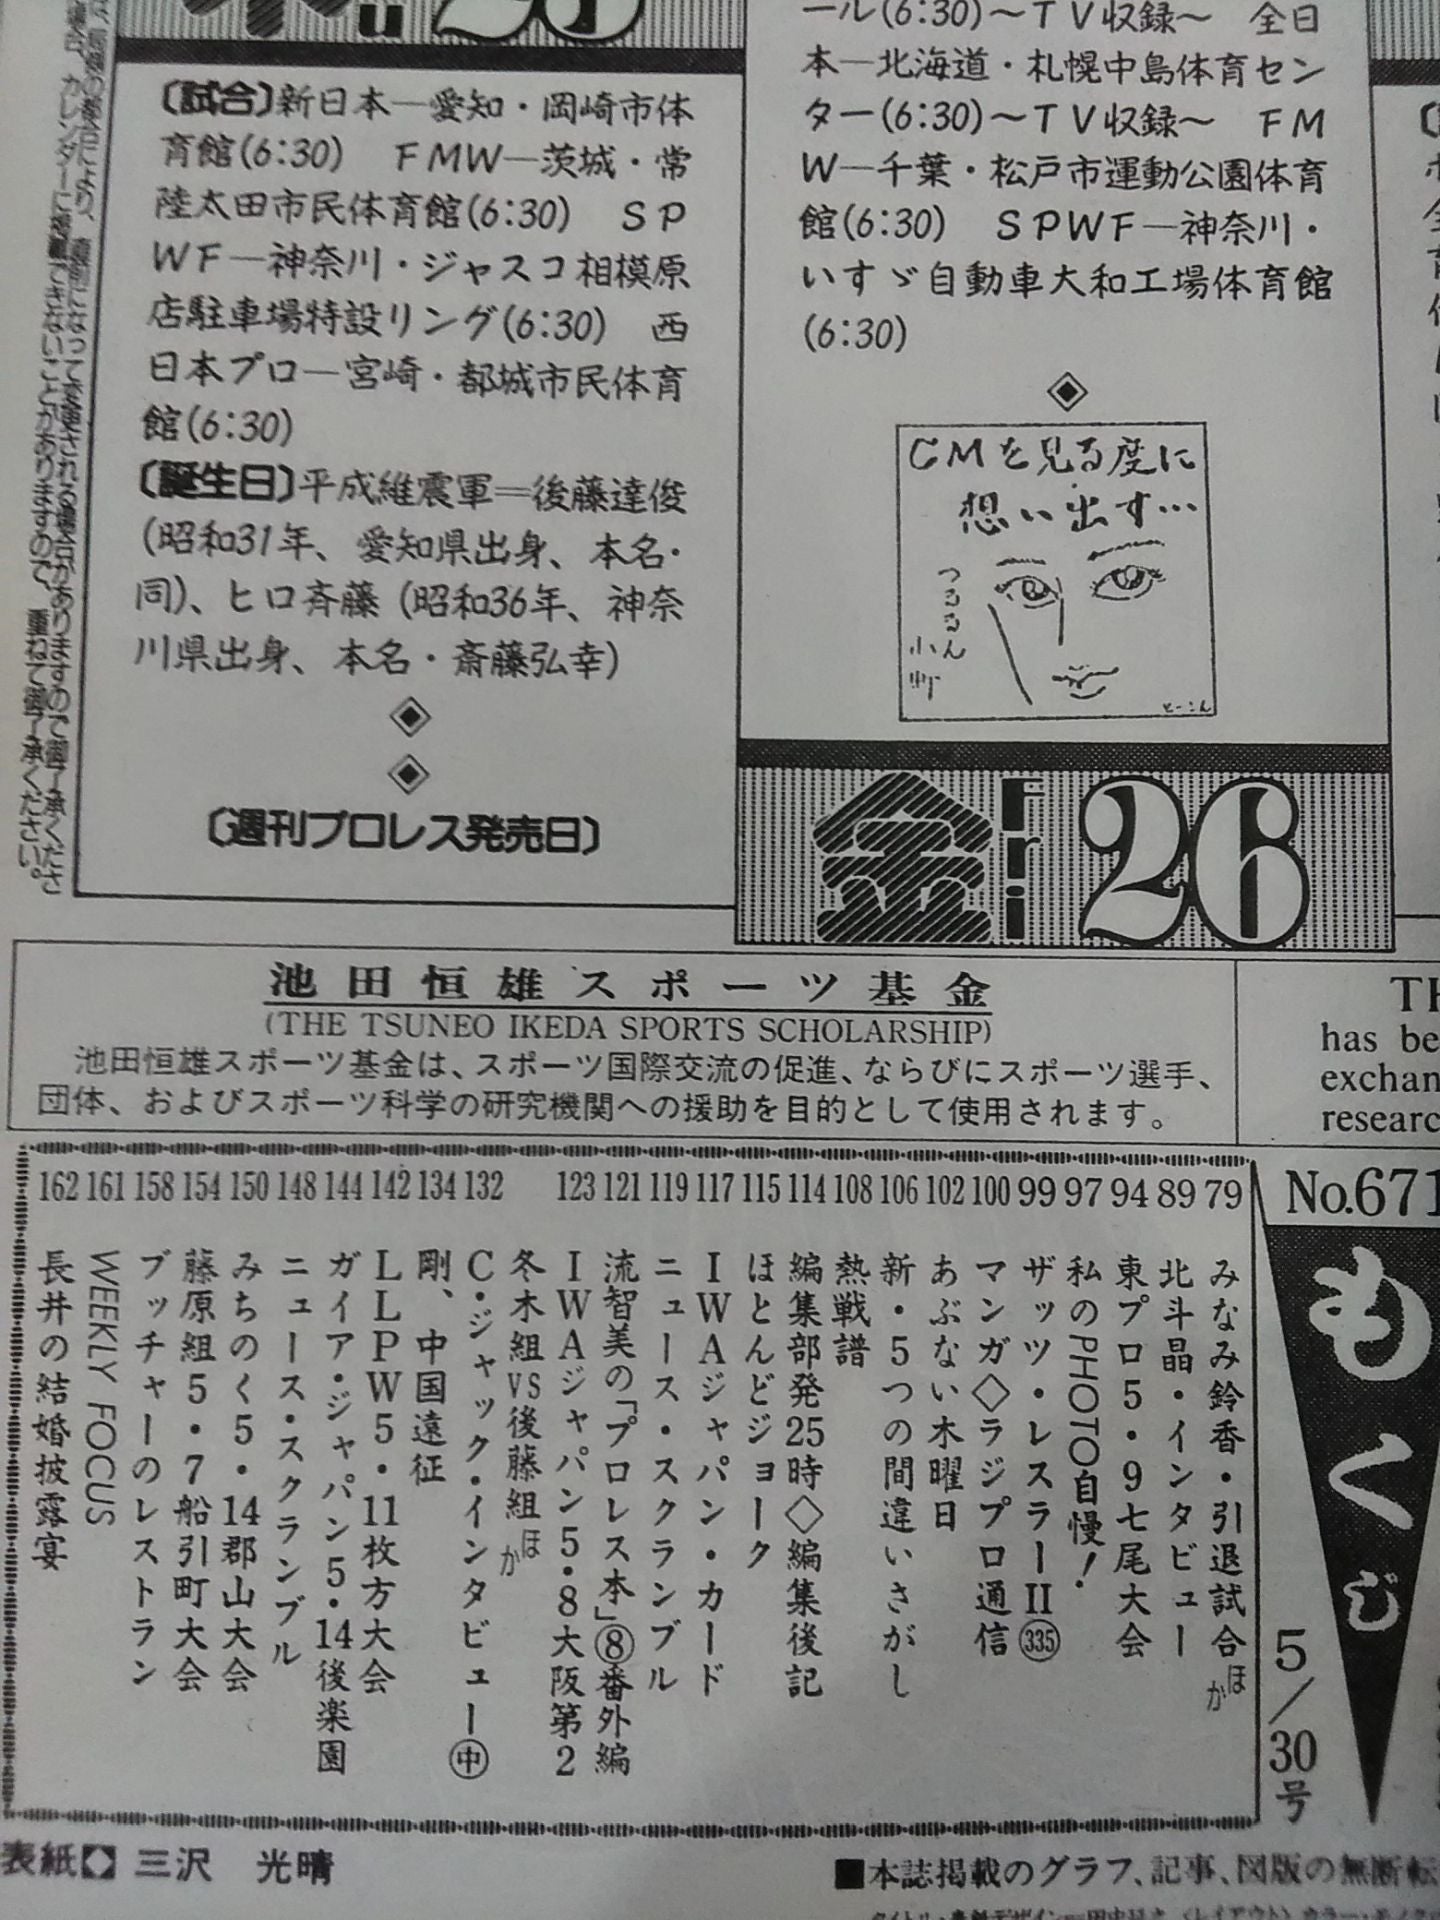 25
〔試合〕新日本―愛知・岡崎市体
育館(6:30)　FMW―茨城・常
陸太田市民体育館(6:30)　SP
WF―神奈川・ジャスコ相模原
店駐車場特設リング(6:30)　西
日本プロ―宮崎・都城市民体育
館(6:30)
〔誕生日〕平成維震軍＝後藤達俊
(昭和31年、愛知県出身、本名・
同)、ヒロ斉藤(昭和36年、神奈
川県出身、本名・斎藤弘幸)
〔週刊プロレス発売日〕
ール(6:30)～TV収録～　全日
本―北海道・札幌中島体育セン
ター(6:30)～TV収録～　FM
W―千葉・松戸市運動公園体育
館(6:30)　SPWF―神奈川・
いすゞ自動車大和工場体育館
(6:30)
CMを見る度に
想い出す…
つるるん
小町
とーこん
金 Fri 26
直前になって変更される場合がありますので御了承くださ
カレンダーに掲載できないことがありますので、重ねて御了承ください。
池田恒雄スポーツ基金
(THE TSUNEO IKEDA SPORTS SCHOLARSHIP)
池田恒雄スポーツ基金は、スポーツ国際交流の促進、ならびにスポーツ選手、
団体、およびスポーツ科学の研究機関への援助を目的として使用されます。
TH
has be
exchan
researc
No.671
もくじ
5/30号
79 みなみ鈴香・引退試合ほか
89 北斗晶・インタビュー
94 東プロ5・9七尾大会
97 私のPHOTO自慢！
99 ザッツ・レスラーII㉟
100 マンガ◇ラジプロ通信
102 あぶない木曜日
106 新・5つの間違いさがし
108 熱戦譜
114 編集部発25時◇編集後記
115 ほとんどジョーク
117 IWAジャパン・カード
119 ニュース・スクランブル
121 流智美の「プロレス本」⑧番外編
123 IWAジャパン5・8大阪第2
冬木組VS後藤組ほか
132 C・ジャック・インタビュー㊥
134 剛、中国遠征
142 LLPW5・11枚方大会
144 ガイア・ジャパン5・14後楽園
148 ニュース・スクランブル
150 みちのく5・14郡山大会
154 藤原組5・7船引町大会
158 ブッチャーのレストラン
161 WEEKLY FOCUS
162 長井の結婚披露宴
表紙◆三沢　光晴
■本誌掲載のグラフ、記事、図版の無断転